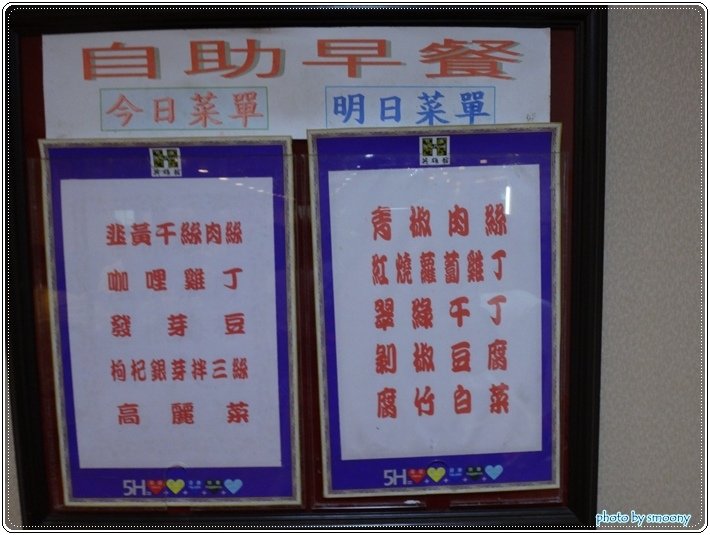 自助早餐
今日菜單
明日菜單
英雄館
韭黃干絲肉絲
咖哩雞丁
發芽豆
枸杞銀芽拌三絲
高麗菜
5H
英雄館
青椒肉絲
紅燒蘿蔔雞丁
翠綠干丁
剝椒豆腐
腐竹白菜
5H
photo by smoony